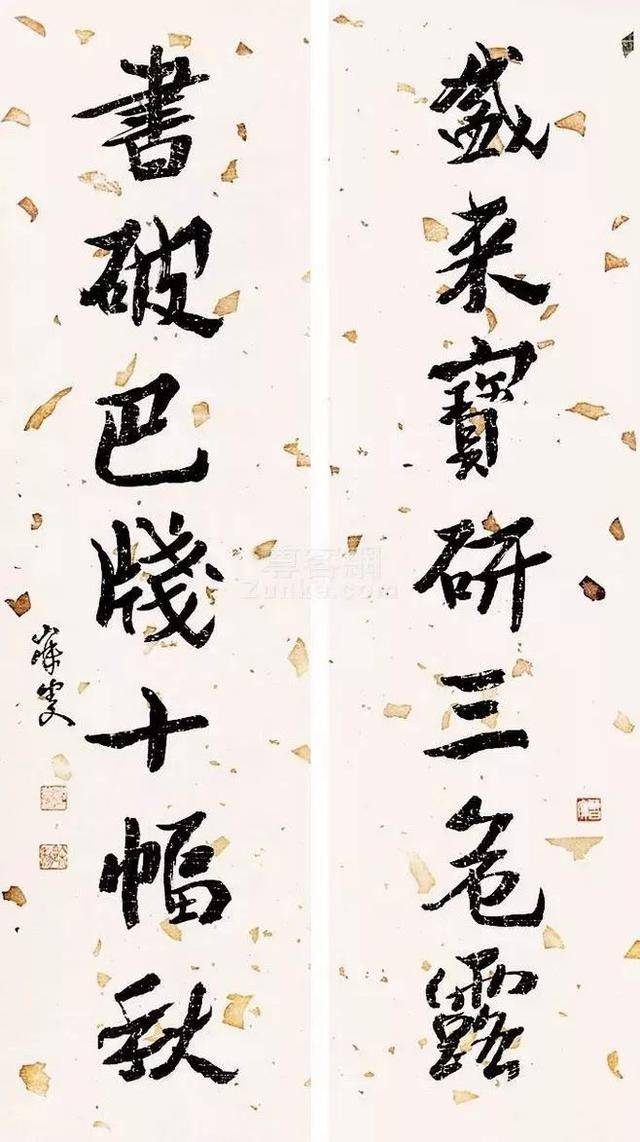 盛来寶研三危露
書破巴牋十幅秋
寐叟
尊客網
Zunke.com